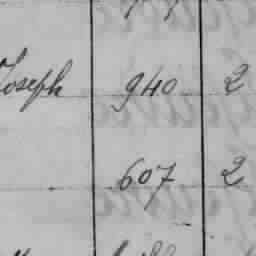 Joseph 940 2
607 2